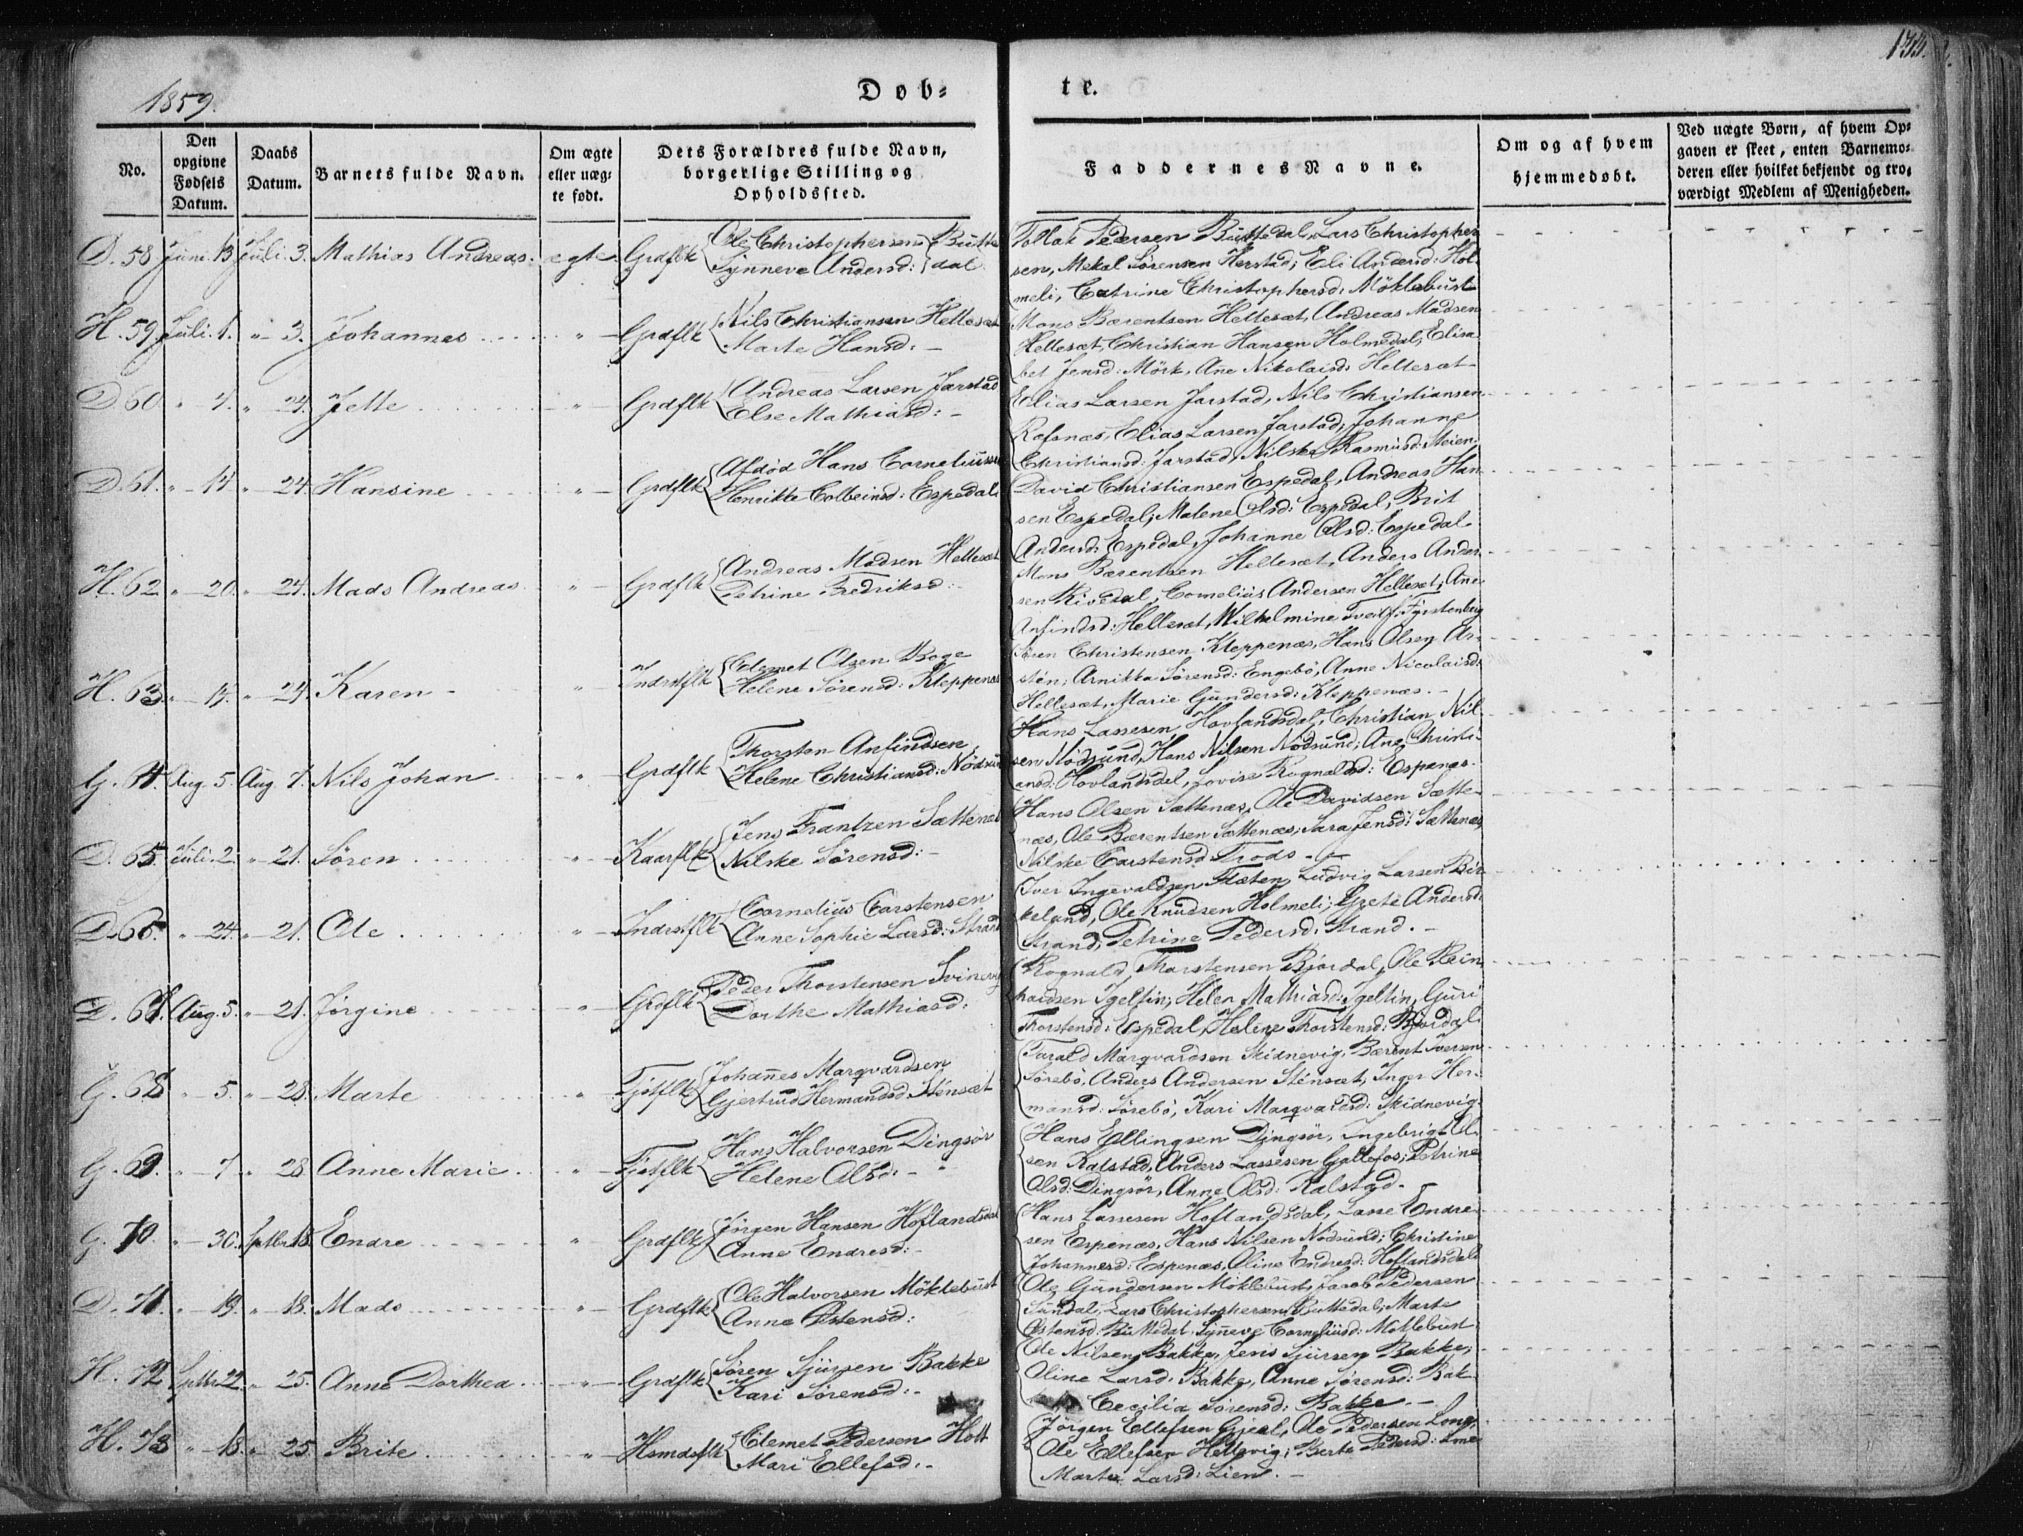 1859.
Døb-
te.
135.
No.
Den opgivne Fødsels Datum.
Daabs Datum.
Barnets fulde Navn.
Om ægte eller uæg- te født.
Dets Forældres fulde Navn, borgerlige Stilling og Opholdssted.
Faddernes Navne.
Om og af hvem hjemmedøbt.
Ved uægte Børn, af hvem Op- gaven er skeet, enten Barnemo- deren eller hvilket bekjendt og tro- værdigt Medlem af Menigheden.
D. 58 Juni 13 Juli. 3. Mathias Andreas. ægte Grdflk Ole Christophersen Butte
Synneve Andersd: dal
Tollak Pedersen Buttedal, Lars Christopher
sen, Mekal Sørensen Herstad; Eli Andersd: Hol
meli, Catrine Christophersd: Möklebust
H. 59 Juli. 1. " 3. Johannes " Grdflk Nils Christiansen Hellesæt
Marte Hansd: -
Mons Bærentsen Hellesæt, Andreas Madsen
Hellesæt, Christian Hansen Holmedal, Elisa
bet Jensd: Mörk, Ane Nikolaisd: Hellesæt
D 60 " 7. " 24. Jette " Grdflk Andreas Larsen Jarstad
Else Mathiasd: -
Elias Larsen Jarstad, Nils Christiansen
Rafsnæs, Elias Larsen Jarstad, Johanne
Christiansd: Jarstad, Nilske Rasmusd: Steien
D. 61. " 14 " 24. Hansine " Grdflk Afdød Hans Corneliussen
Henrikke Colbeinsd: Espedal
David Christiansen Espedal, Andreas Han
sen Espedal; Malene Olsd: Espedal, Brit
Andersd: Espedal, Johanne Olsd: Espedal
H. 62 " 20. " 24. Mads Andreas " Grdflk Andreas Madsen Hellesæt
Petrine Fredriksd: -
Mons Bærentsen Hellesæt, Anders Ander
sen Rivedal, Cornelius Andersen Hellesæt; Ane
Anfindsd: Hellesæt, Wilhelmine Tveit Fyrstenberg
H. 63 " 14. " 24. Karen " Indrstflk Clemet Olsen Boge
Helene Sørensd: Kleppenæs
Søren Christensen Kleppenæs, Hans Olsen
Arnikka Sørensd: Engebö, Anne Nicolaisd:
Hellesæt, Marie Gundersd: Kleppenæs. -
G. 64. Aug. 5. Aug 7. Nils Johan " Grdflk Thorsten Anfindsen
Helene Christiansd: Nödsund
Hans Lassesen Hovlandsdal, Christian Nil
sen Nödsund, Hans Nilsen Nödsund; Ane Christi
ansd: Hovlandsdal, Lovise Rognaldsd: Espenæs.
D. 65 Juli. 2. " 21. Søren " Kaarflk Jens Frantzen Sættenæs
Nilske Sørensd: -
Hans Olsen Sættenæs, Ole Davidsen Sætte
næs, Ole Bærentsen Sættenæs; Sara Jensd: Sættenæs,
Nilske Carstensd:
D. 66. " 24. " 21. Ole " Indrstflk Cornelius Carstensen
Anne Sophie Larsd: Strand
Iver Ingevaldsen Flæten, Ludvig Larsen Bir
keland, Ole Knudsen Holmeli; Grete Andersd:
Strand, Petrine Pedersd: Strand. -
D. 67 Aug. 5. " 21. Jørgine " Grdflk Peder Thorstensen Svinevig
Dorthe Mathiasd:
Rognald Thorstensen Bjordal, Ole Rein
hardsen Igeltin; Helen Mathiasd: Igeltin, Guri
Thorstensd: Espedal, Helene Thorstensd: Bjordal.
G. 68 " 5. " 28. Marte " Fjotflk Johannes Marqvardsen
Gjertrud Hermandsd. Stensæt
Tarald Marqvardsen Skidnevig, Bærent Iversen
Sørebö, Anders Andersen Stensæt, Inger Her
mansd: Sørebö, Kari Marqvardsd: Skidnevig
G. 69. " 7 " 28 Anne Marie " Fjotflk Hans Halvorsen Dingsör
Helene Olsd: -
Hans Ellingsen Dingsör, Ingebrigt Ol
sen Kalstad, Anders Lassesen Gallefos; Petrine
Olsd: Dingsör, Anne Olsd: Kalstad.
G. 70 " 30. Septbr 18. Endre " Grdflk Jörgen Hansen Hoflandsdal
Anne Endresd: -
Hans Lassesen Hoflandsdal, Lasse Endre
sen Espenæs, Hans Nilsen Nödsund; Christine
Johannesd: Espenæs, Oline Endresd: Hoflandsdal
D. 71. " 19. " 18. Mads " Grdflk Ole Halvorsen Möklebust
Anne Østensd:
Ole Gundersen Möklebust, Jacob Pedersen
Sundal, Lars Christophersen Buttedal; Marte
Østensd: Buttedal, Synneve Corneliusd: Möklebust
H. 72 Septbr 22. " 25. Anne Dorthea " Grdflk Søren Sjursen Bakke
Kari Sørensd: -
Ole Nilsen Bakke, Jens Sjursen Bakke;
Oline Larsd: Bakke, Anne Sørensd: Bak
Cecilia Sørensd: Bakke. -
H. 73 " 18. " 25. Brite " Hsmdsflk Clemet Pedersen Holt
Mari Ellefsd: -
Jørgen Ellefsen Gjeel, Ole Pedersen
Ole Ellefsen Hellevig; Berte Pedersd:
Marte Larsd: Lien. -